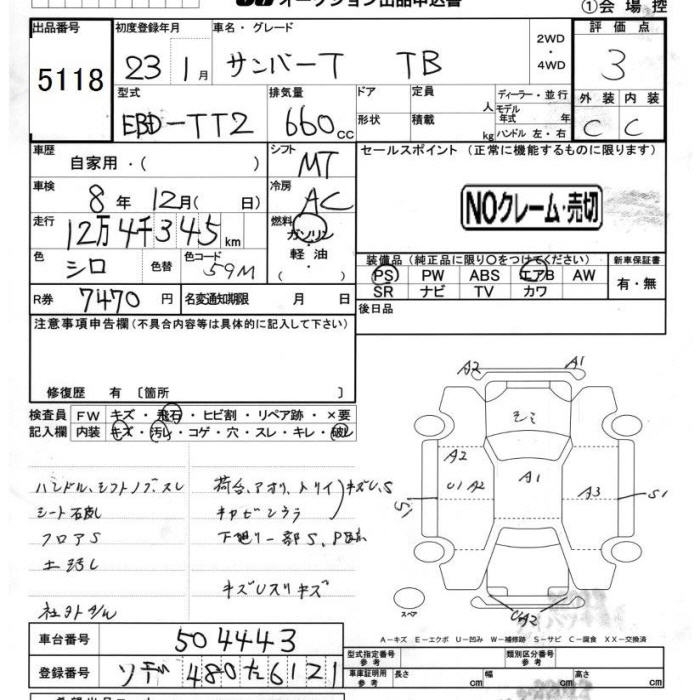 オークション出品申込書
①会場控
出品番号 初度登録年月 車名・グレード 2WD・4WD 評価点
5118 23 1月 サンバーT TB 3
型式 排気量 ドア 定員 人 ディーラー・並行 外装 内装
EBD-TT2 660cc 形状 積載 kg モデル年式 年 ハンドル 左・右 C C
車歴 自家用・( ) シフト MT セールスポイント (正常に機能するものに限ります)
車検 8年12月( 日) 冷房 AC
NOクレーム・売切
走行 12万4千345km 燃料 ガソリン・軽油・
色 シロ 色替 色コード 59M
装備品 (純正品に限り○をつけてください) 新車保証書
PS PW ABS エアB AW 有・無
SR ナビ TV カワ
R券 7470円 名変通知期限 月 日 後日品
注意事項申告欄 (不具合内容等は具体的に記入して下さい)
修復歴 有 [箇所 ]
検査員 FW キズ・飛石・ヒビ割・リペア跡・×要
記入欄 内装 キズ・汚れ・コゲ・穴・スレ・キレ・破レ
A2 A1
A2 U1 A2 A1 A3 S1 S1
ハンドル、シフトノブスレ 荷台、アオリ、トリイ キズU、S
シート破れ キャビンウラ
フロアS 下廻り一部S、P
土汚し
キズUスリキズ
スペア
UA2
A-キズ E-エクボ U-凹み W-補修跡 S-サビ C-腐食 XX-交換済
車台番号 504443 型式指定番号 参考 類別区分番号 参考
登録番号 480た6121 車庫証明用 参考 長さ cm 幅 cm 高さ cm